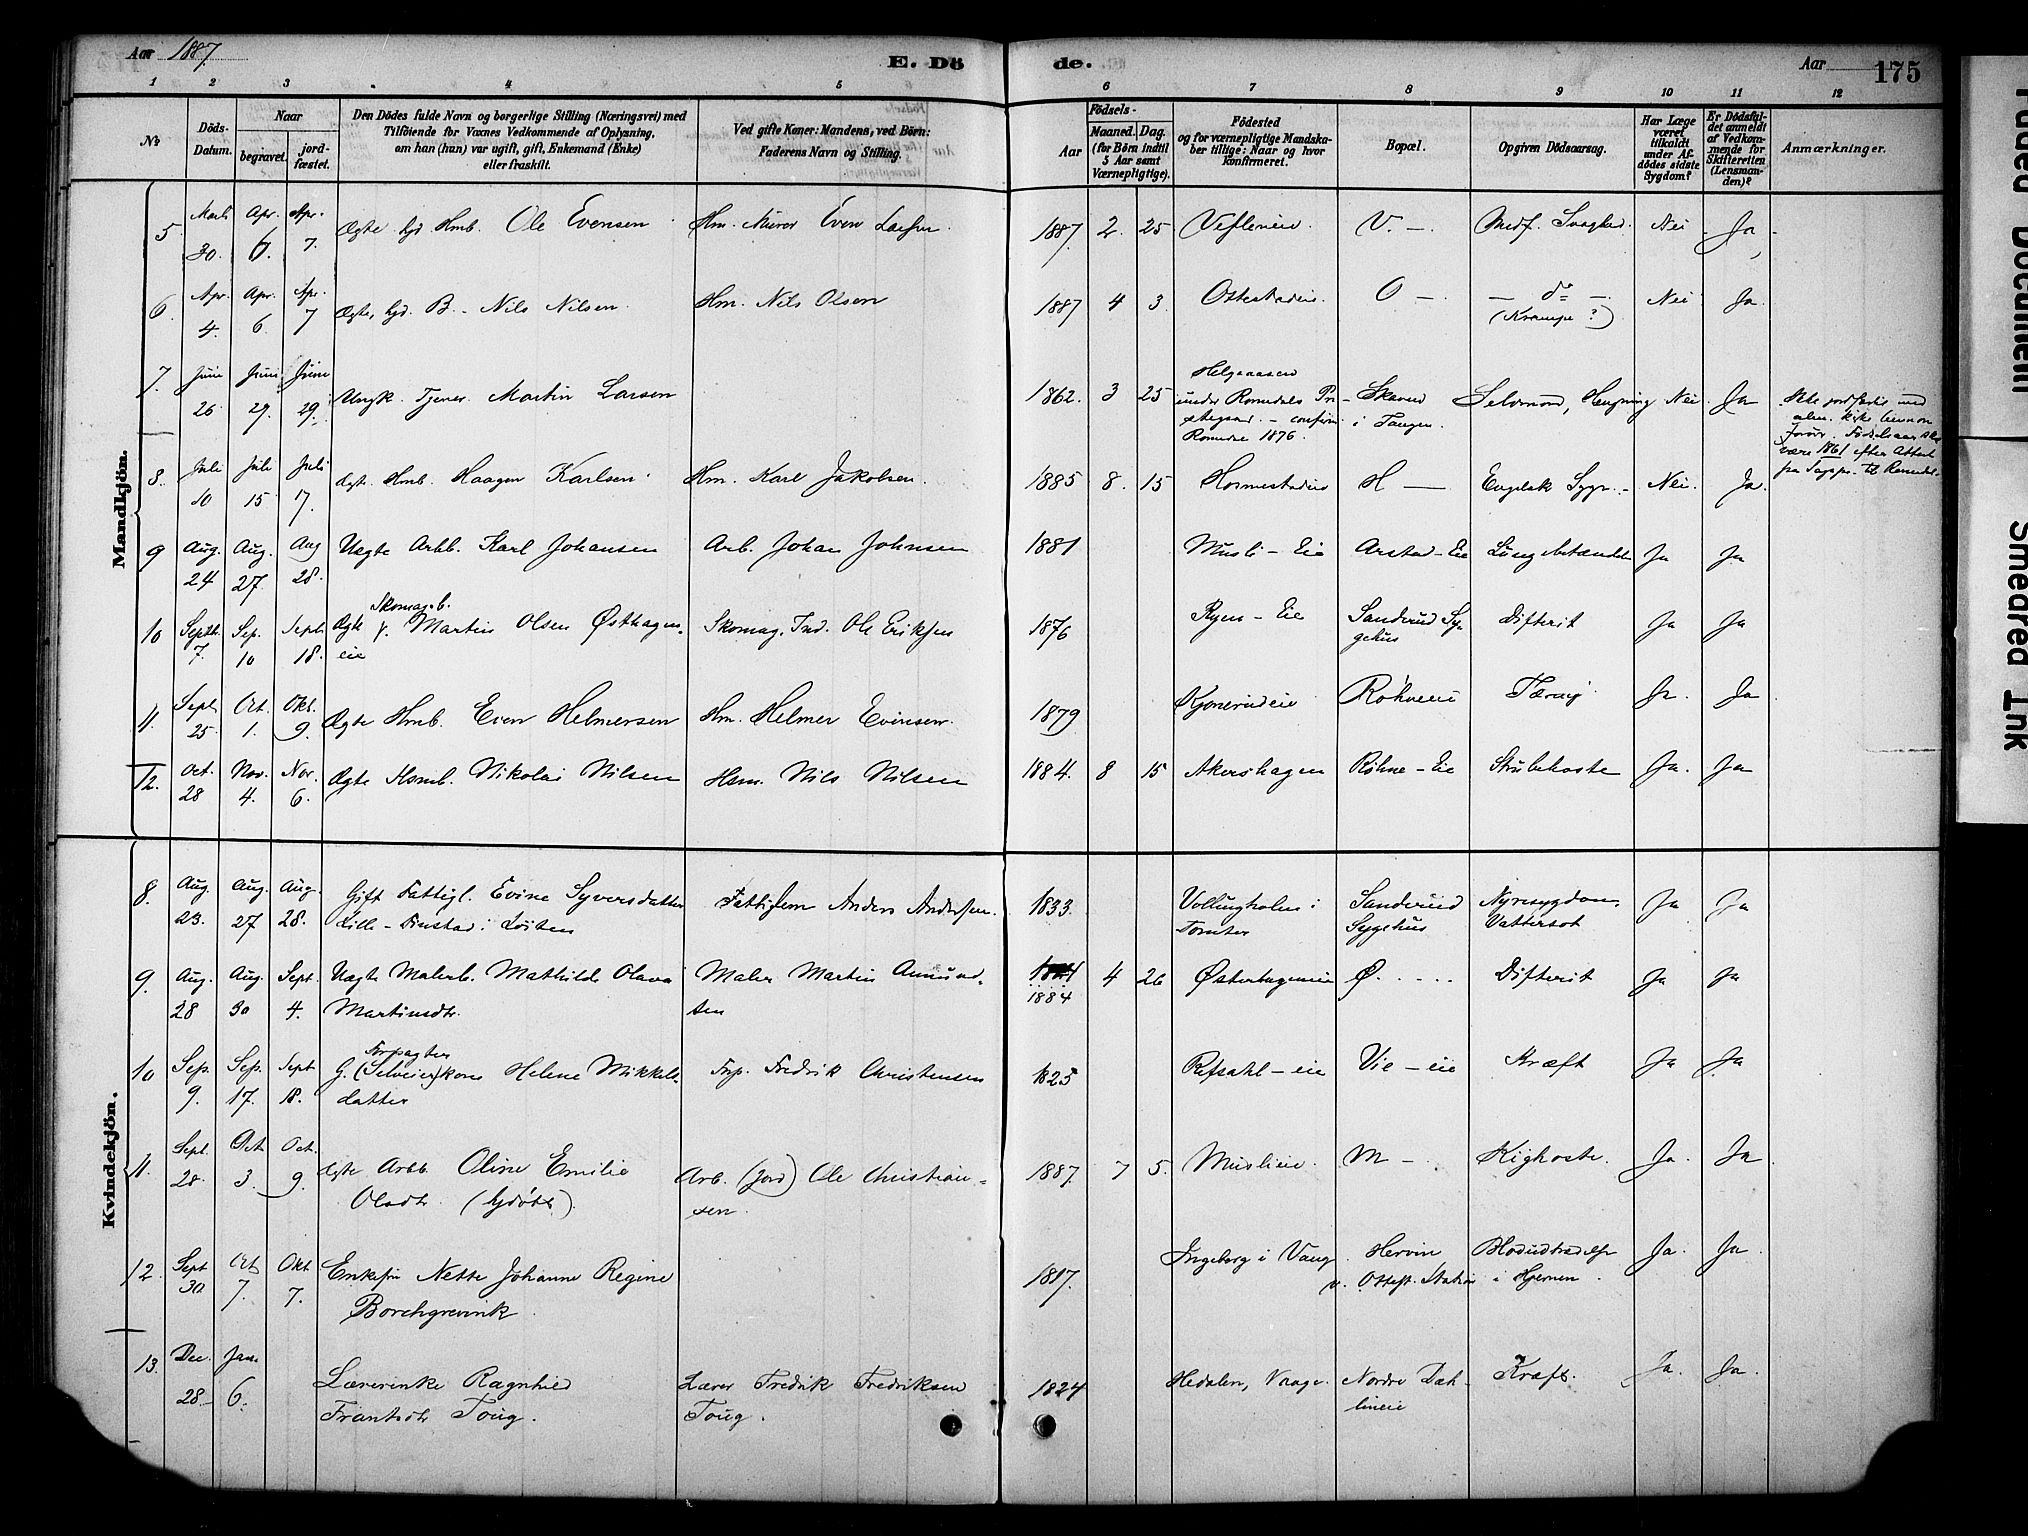 Aar 1887.
E. Dö de.
Aar 175
1 2 3 4 5 6 7 8 9 10 11 12
No
Döds-Datum.
Naar
begravet.
jord-fæstet.
Den Dödes fulde Navn og borgerlige Stilling (Næringsvei) med
Tilföiende for Voxnes Vedkommende af Oplysning,
om han (hun) var ugift, gift, Enkemand (Enke)
eller fraskilt.
Ved gifte Koner: Mandens, ved Börn:
Faderens Navn og Stilling.
Födsels-
Aar
Maaned. Dag.
(for Börn indtil
5 Aar samt
Værnepligtige).
Födested
og for værnepligtige Mandska-
ber tillige: Naar og hvor
konfirmeret.
Bopæl.
Opgiven Dödsaarsag.
Har Læge
været
tilkaldt
under Af-
dödes sidste
Sygdom?
Er Dödsfal-
det anmeldt
af Vedkom-
mende for
Skifteretten
(Lensman-
den)?
Anmærkninger.
Mandkjön.
5 Marts 30. Apr. 6. Apr. 7. Ægte hjd Hmb. Ole Evensen Hm. Murer Even 1887. 2. 25 V. —. Medf. Svaghed. Nei Ja
6. Apr. 4. Apr. 6. Apr. 7 Ægte, hjd. B. Nils Nilsen Hm. Nils Olsen 1887 4 3. O — — do —. Nei Ja
(Krampe ?)
7. Juni 26 Juni 29. Juni 29. Ungk. Tjener Martin Larsen 1862. 3 25 Helgeaasen
under Romedals Præ-
stegaard. – confirm
Romedal 1876.
i Tangen. Selvmord, Hængning Nei. Ja
8. Juli 10 Juli 15 Juli 17. Ægt. Hmb. Haagen Karlsen. Hm. Karl Jakobsen. 1885 8. 15 H — Engelsk Syge. Nei. Ja.
9 Aug. 24 Aug. 27. Aug 28. Uægte Arbb. Karl Johansen Arb. Johan Johnsen 1881 Musli – Eie Arstad – Eie Lungebetændelse Ja Ja
10 Septbr. 7. Sep. 10 Septb 18. Ægte Skomag. b. Martin Olsen Østhagen-
eie
Skomag. Ind. Ole Eriksen 1876 Ryen – Eie Sanderud Sy-
gehus
Difterit Ja Ja
11. Septr 25 Oct. 1. Okt. 9. Ægte Hmb. Even Helmersen Hm. Helmer Evensen. 1879 Kjonerudeie Røhneeie Tæring Ja. Ja
12. Oct. 28 Nov. 4. Nov. 6. Ægte Hsmb. Nikolai Nilsen Hsm. Nils Nilsen 1884. 8 15 Akershagen Røhne – Eie Strubehoste Ja. Ja
Kvindekjön.
8. Aug. 23. Aug. 27 Aug. 28. Gift Fattigl. Evine Syversdatter
Lille – Finstad i Løiten
Fattiglem Anders Andersen. 1833. i
Tomter
Sanderud
Sygehus
Nyresygdom.
Vattersot
Ja Ja
9. Aug. 28 Aug. 30 Sept. 4. Uægte Malerb. Mathilde Olava
Martinsdtr.
Maler Martin Amund-
sen
1884 4 26 Ø. – – – Difterit Ja Ja
10 Sep. 9. Sep. 17. Sept 18. G. (Selveier)kone Helene Mikkels-
Forpagter
datter
Frp. Fredrik Christensen 1825 Refsahl – eie Vie – eie Kræft Ja Ja
11. Sept. 28. Oct 3. Oct. 9. Ægte Arbb. Oline Emilie
Olsdtr. (hjdøbt).
Arb. (Jord) Ole Christian-
sen.
1887. 7 5. Muslieie. M –. Kighoste. Ja. Ja
12. Sept 30 Oct 7. Okt 7. Enkefru Nette Johanne Regine
Borchgrevink.
1817. Ingeberg i Vang. Hervin
v. Ottest. Station
Blodudtrædelse
i Hjernen.
Ja. Ja.
13. Dec. 28. Jan. 6. Lærerenke Ragnhild
Frantsdtr Toug.
Lærer Fredrik Fredriksen
Toug.
1824 Hedalen, Vaage. Nordre Dæh-
lineie
Kræft. Ja. Ja.
Faded Document
Smeared Ink